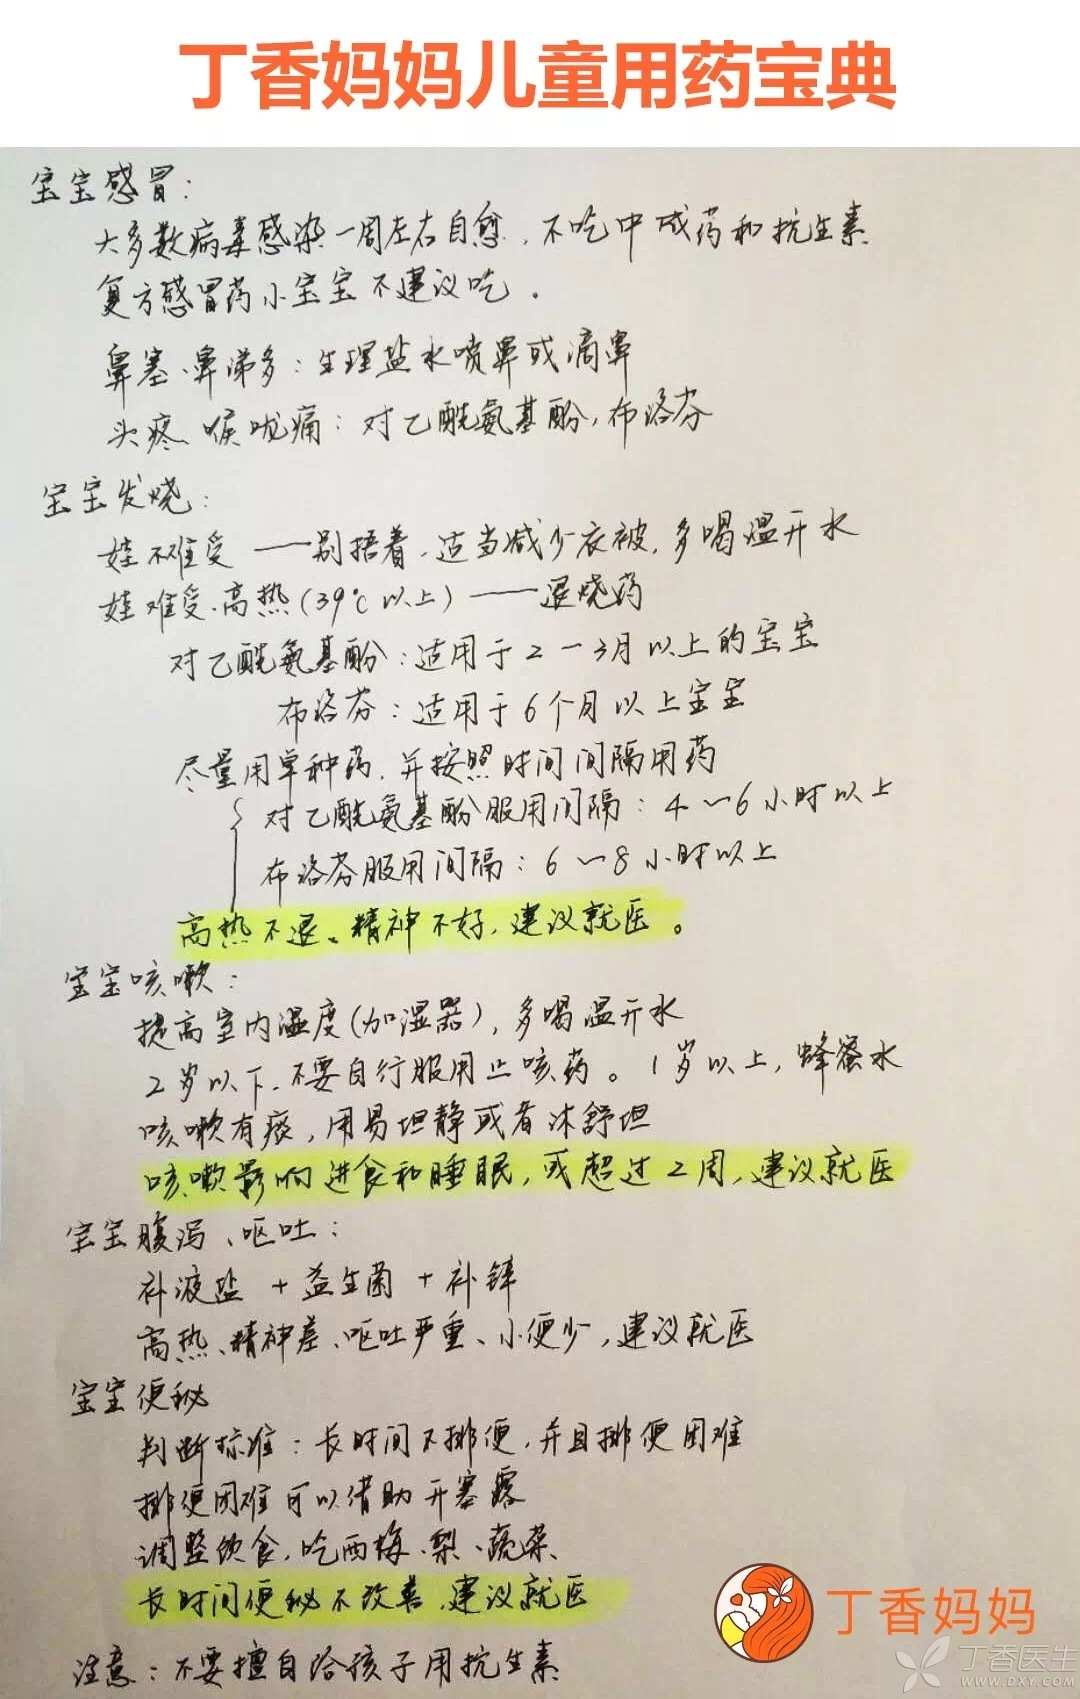 丁香妈妈儿童用药宝典
宝宝感冒：
大多数病毒感染一周左右自愈，不吃中成药和抗生素
复方感冒药小宝宝不建议吃。
鼻塞、鼻涕多：生理盐水喷鼻或滴鼻
头疼、喉咙痛：对乙酰氨基酚，布洛芬
宝宝发烧：
娃不难受——别捂着，适当减少衣被，多喝温开水
娃难受、高热(39℃以上)——退烧药
对乙酰氨基酚：适用于2一3月以上的宝宝
布洛芬：适用于6个月以上宝宝
尽量用单种药，并按照时间间隔用药
对乙酰氨基酚服用间隔：4~6小时以上
布洛芬服用间隔：6~8小时以上
高热不退、精神不好，建议就医。
宝宝咳嗽：
提高室内湿度(加湿器)，多喝温开水
2岁以下，不要自行服用止咳药。1岁以上，蜂蜜水
咳嗽有痰，用易坦静或者沐舒坦
咳嗽影响进食和睡眠，或超过2周，建议就医
宝宝腹泻、呕吐：
补液盐＋益生菌＋补锌
高热、精神差、呕吐严重、小便少，建议就医
宝宝便秘
判断标准：长时间不排便，并且排便困难
排便困难可以借助开塞露
调整饮食，吃西梅、梨、蔬菜
长时间便秘不改善，建议就医
注意：不要擅自给孩子用抗生素
丁香妈妈
丁香医生
WWW.DXY.COM